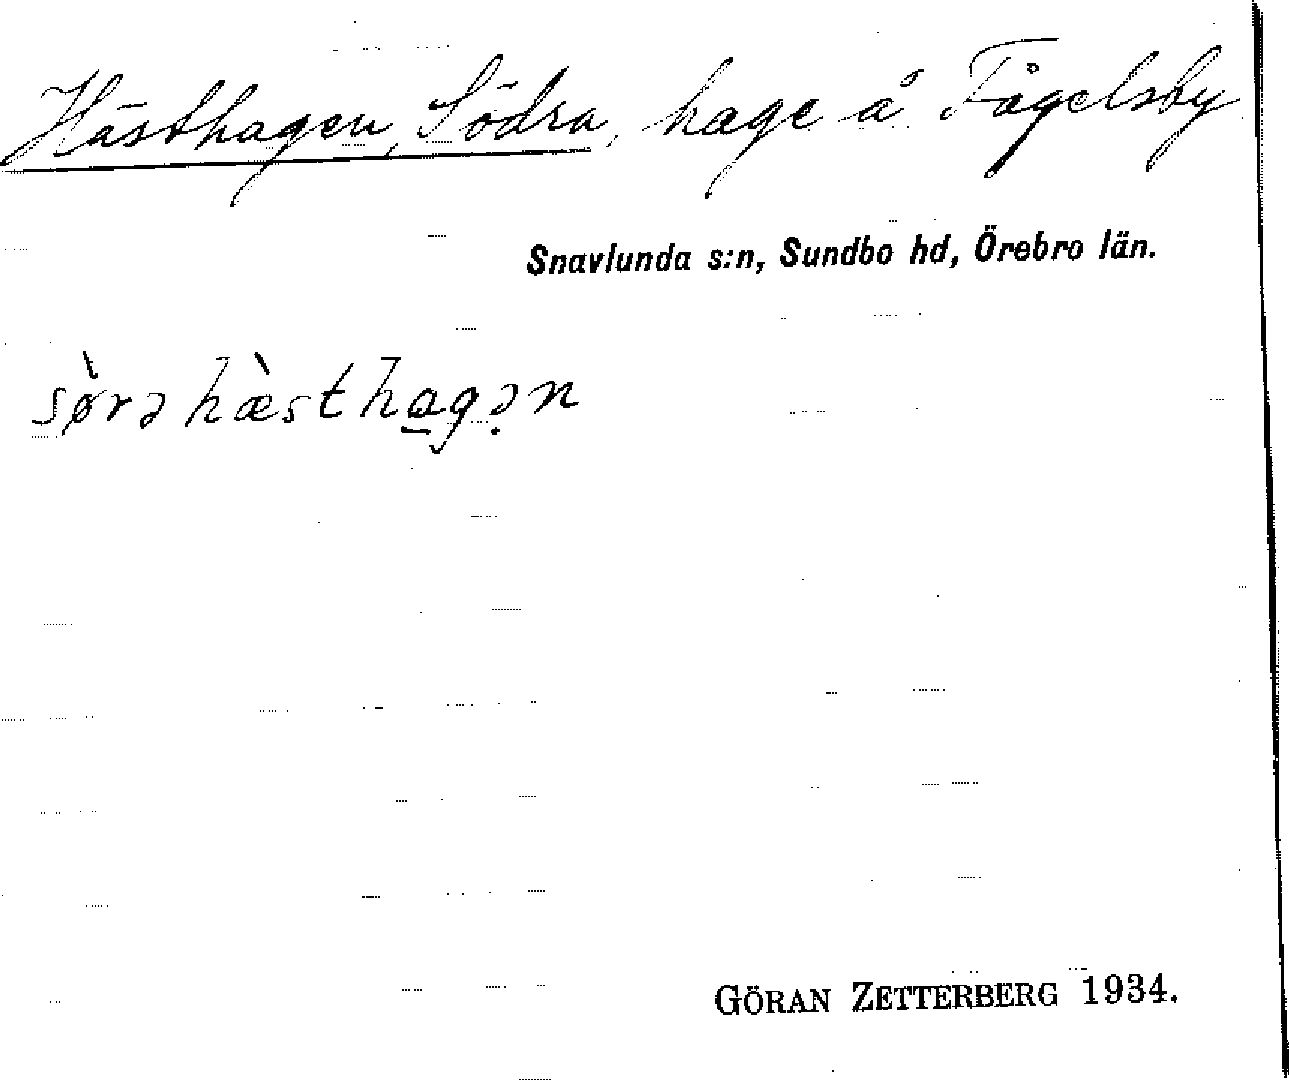 Hästhagen, Södra, hage å Fågelsby
Snavlunda s:n, Sundbo hd, Örebro län.
sø̀rə hæ̀stha̱gə̣n
GÖRAN ZETTERBERG 1934.